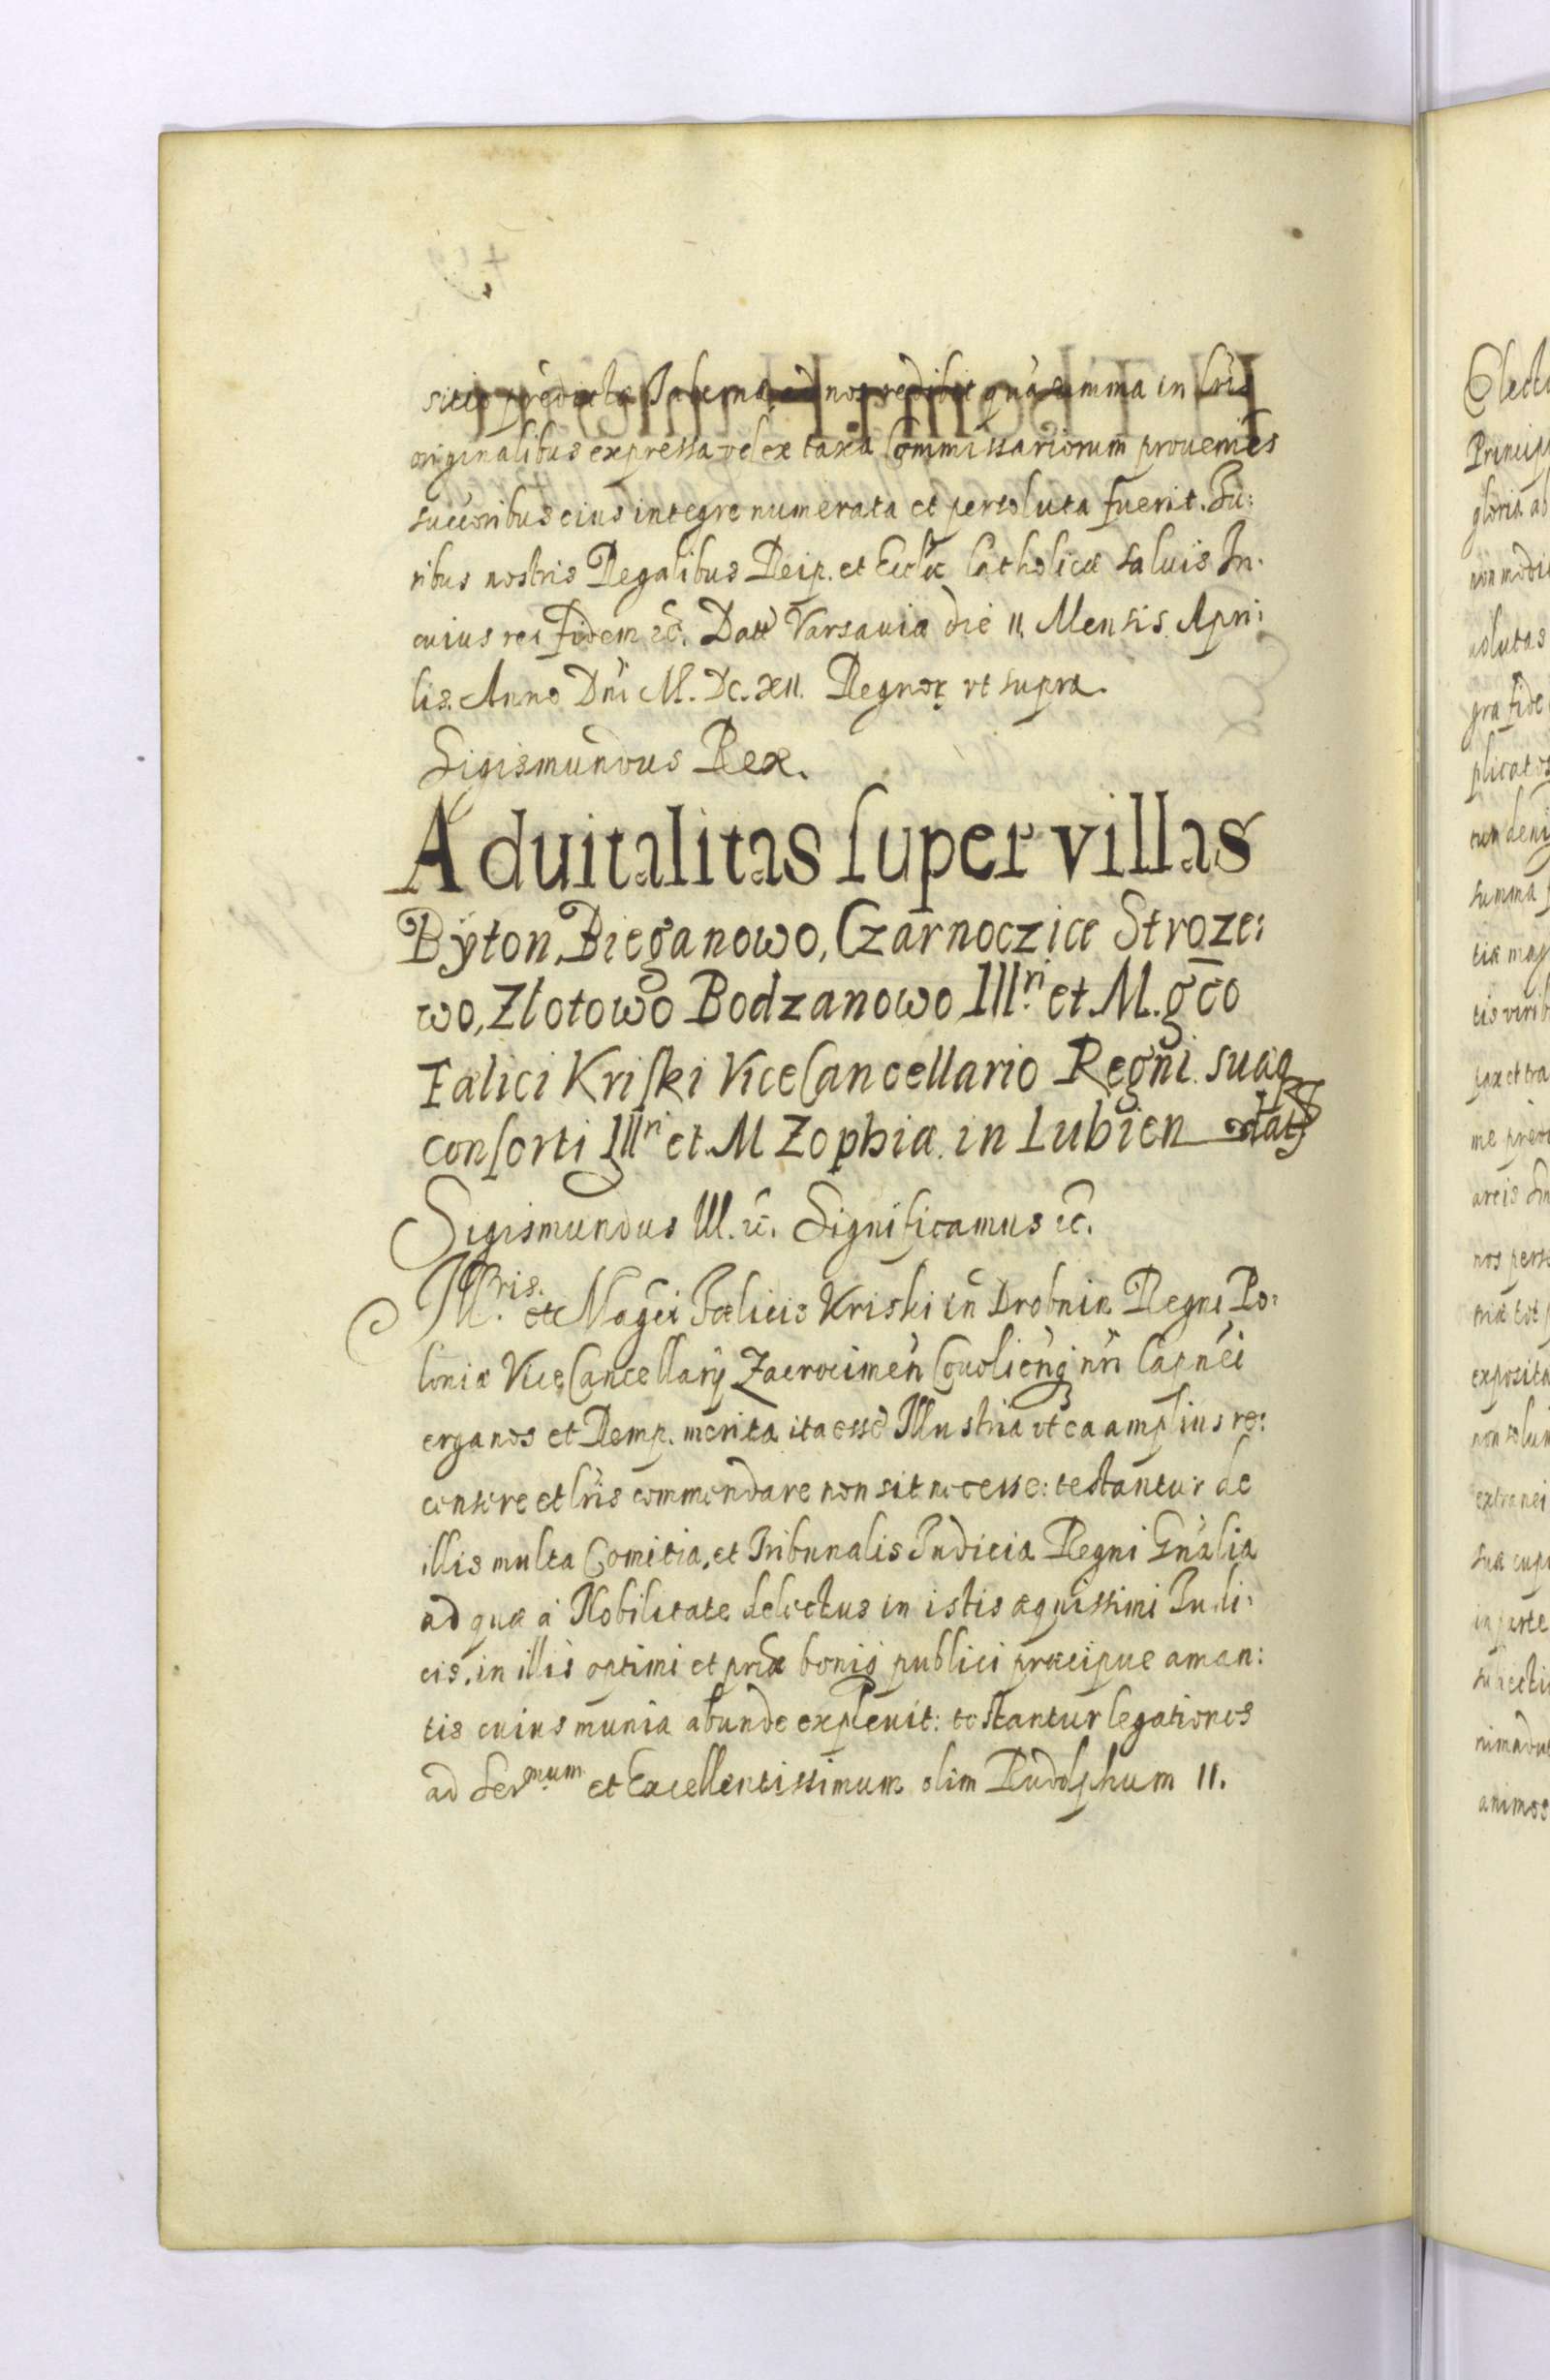 sitio prædictæ Tabernæ ad nos redibit quàm summa in Lris
originalibus expressa vel ex taxa Commissariorum proueniēs
succoribus eius integre numerata et persoluta fuerit. Iu:
ribus nostris Regalibus Reip. et Ecclæ Catholicæ saluis In
cuius rei fidem &c. Datt Varsauiæ die 11. Mensis Apri:
lis. Anno Dni M. DC. XII. Regnor vt supra.
Sigismundus Rex.
Aduitalitas super villas
Byton, Bieganowo, Czarnoczice Stroze:
wo, Zlotowo Bodzanowo Illri et M.gco
Fælici Kriski ViceCancellario Regni suæq
consorti Illri et M Zophiæ in Lubien dat
Sigismundus III. &c. Significamus &c.
Illris. et Magci Fœlicis Kriski in Drobnin Regni Po:
loniæ ViceCancellarij Zacrocimen Covolien nri Capnei
erga nos et Remp. merita ita esse Illustria vt ea amplius re:
censere et lris commendare non sit necesse: testantur de
illis multa Comitia, et Tribunalis Iudicia Regni Gnalia
ad quæ à Nobilitate delectus in istis æquissimi Iudi:
cis, in illis optimi et priæ bonis publici præcipue aman:
tis cuius munia abunde expleuit: testantur legationes
ad Sermum et Excellentissimum olim Rudolphum II.